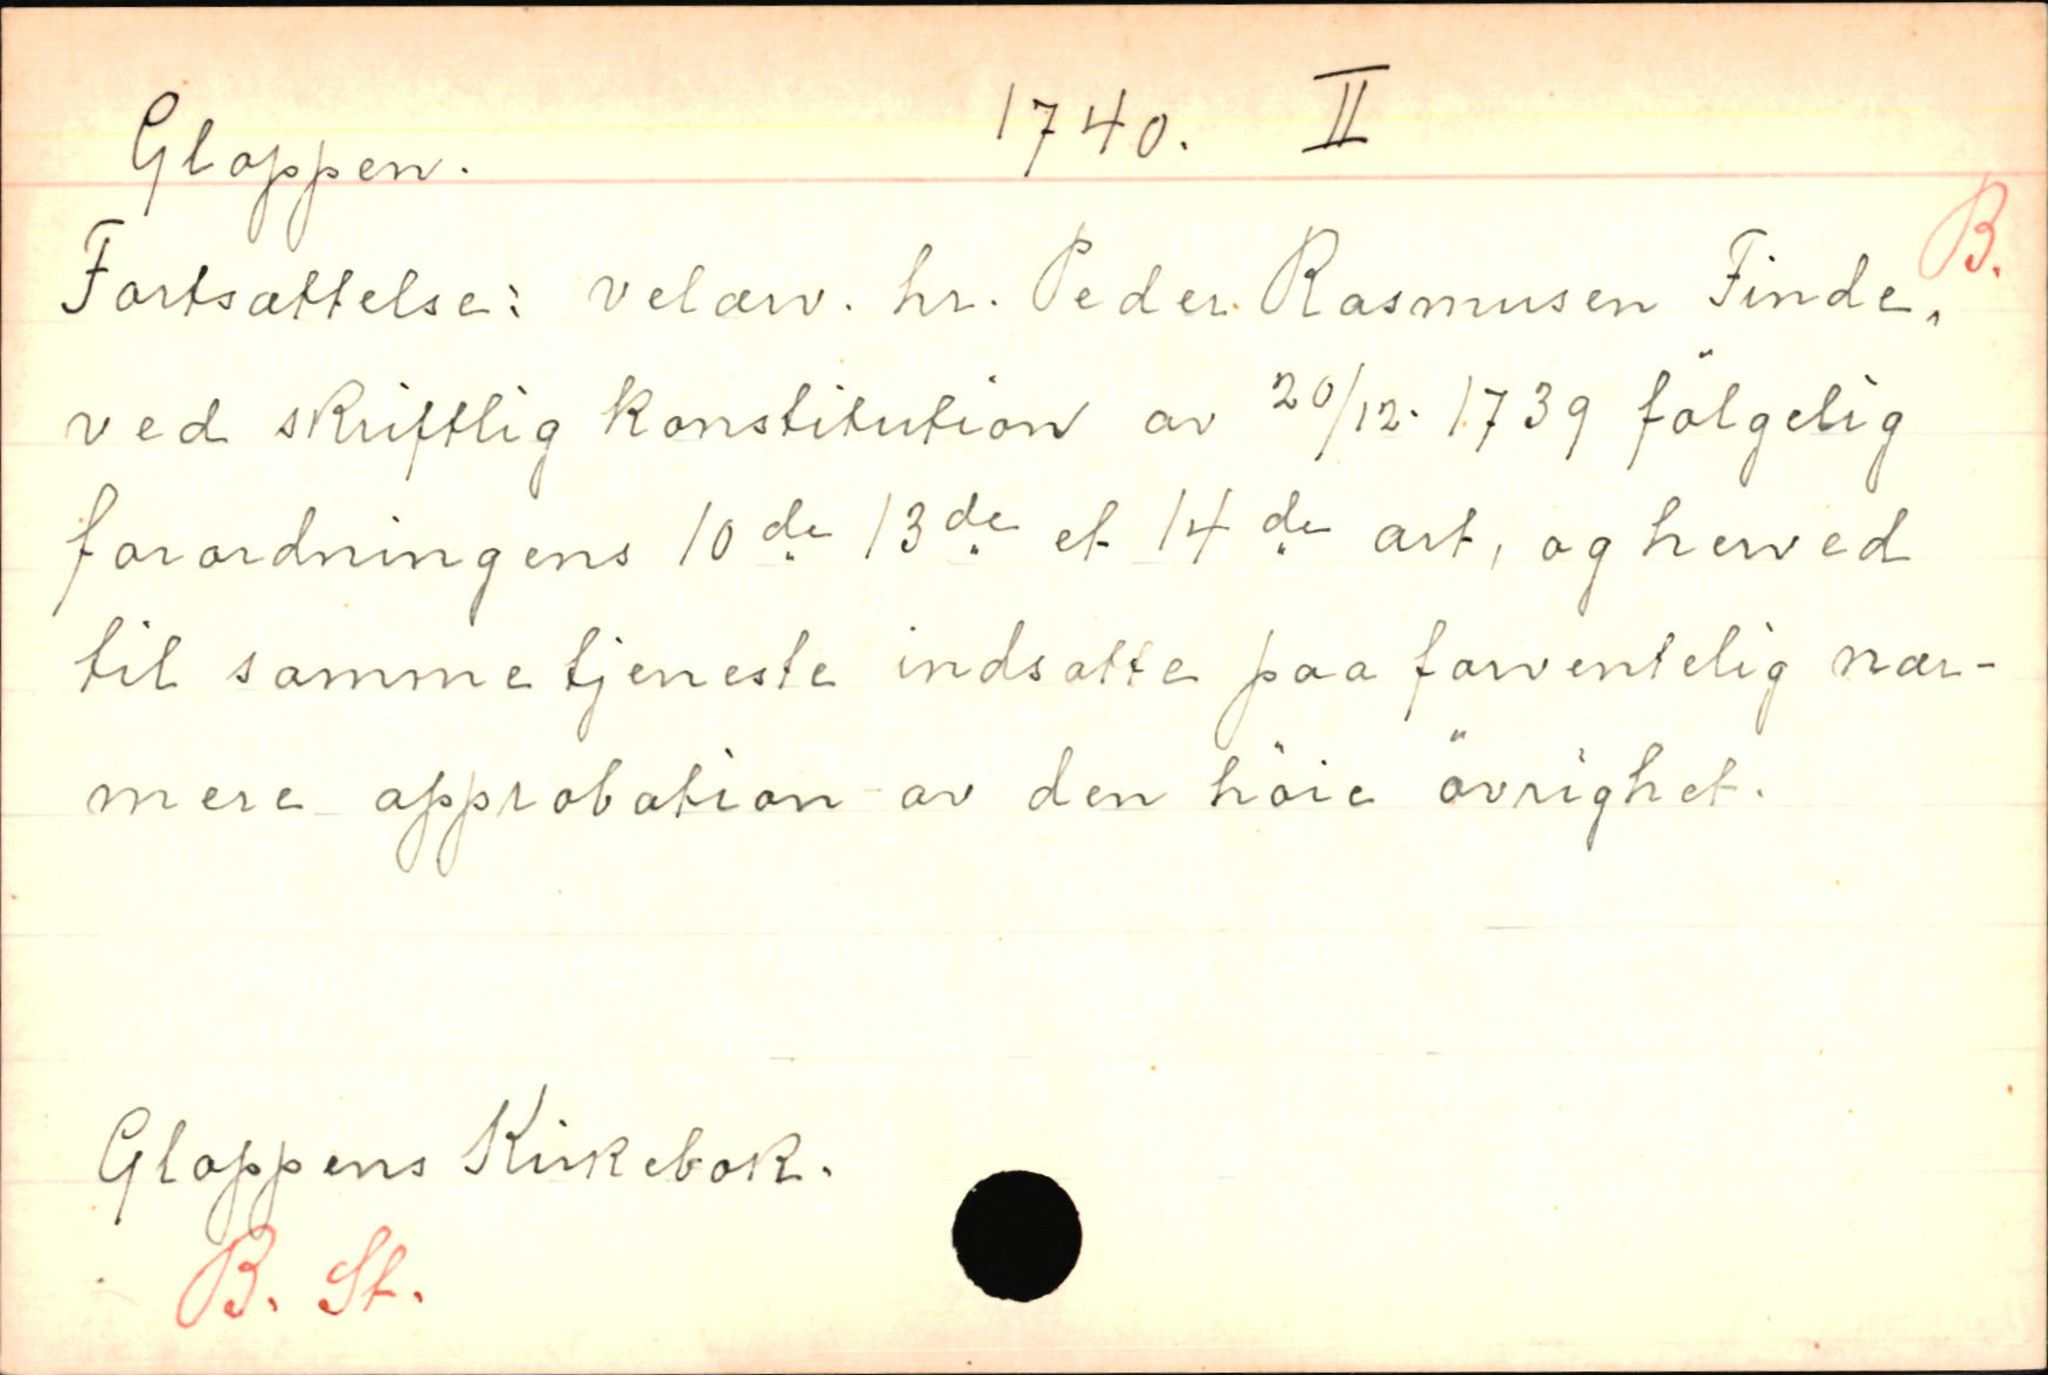 Gloppen. 1740. II
B.
Fortsættelse: velærv. hr. Peder Rasmusen Finde,
ved skriftlig konstitution av 20/12. 1739 fölgelig
forordningens 10de 13de et 14de art, og herved
til samme tjeneste indsatte paa forventelig nær-
mere approbation av den höie övrighet.
Gloppens Kirkebok.
B. St.